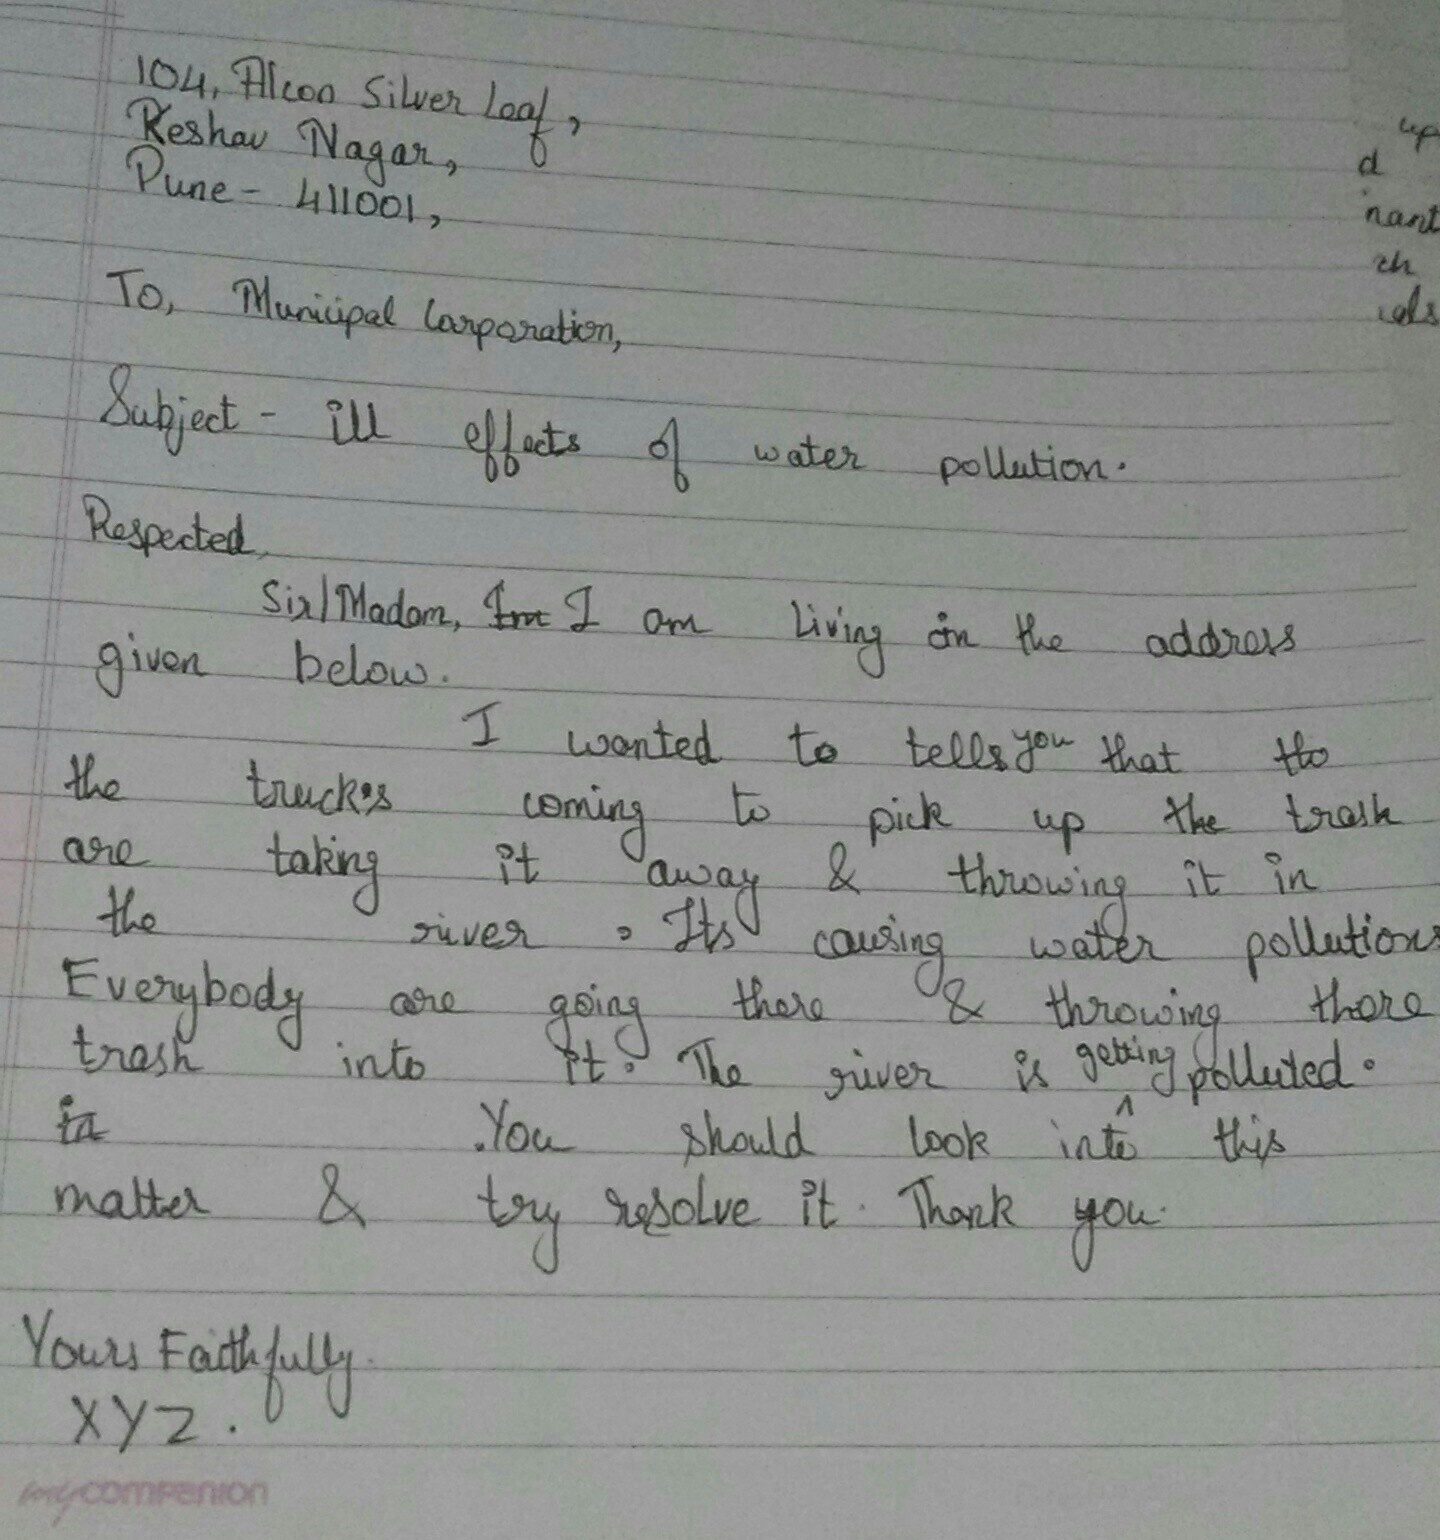 104, Alcon Silver Leaf,
Keshav Nagar,
Pune - 411001,
To, Municipal Corporation,
Subject - ill effects of water pollution.
Respected,
Sir/Madam, I am living in the address
given below.
I wanted to tells you that the
the truckes coming to pick up the trash
are taking it away & throwing it in
the river. Its causing water pollution
Everybody are going there & throwing there
trash into it. The river is getting polluted.
in You should look into this
matter & try resolve it. Thank you.
Yours Faithfully.
XYZ.
mycompanion
up
d
nant
ch